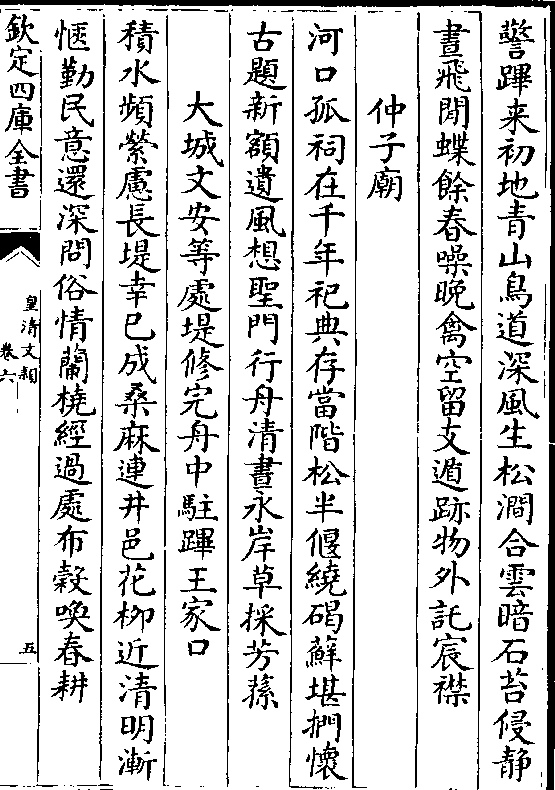 警蹕来初地青山鳥道深風生松澗合雲暗石苔侵静
晝飛閒蝶餘春噪晚禽空留支遁跡物外託宸襟
仲子廟
河口孤祠在千年祀典存當階松半偃繞碣蘚堪捫懷
古題新額遺風想聖門行舟清晝永岸草採芳蓀
大城文安等處堤修完舟中駐蹕王家口
積水頻縈慮長堤幸已成桑麻連井邑花柳近清明漸
愜勤民意還深問俗情蘭橈經過處布穀喚春耕
欽定四庫全書
皇清文穎
卷六
五